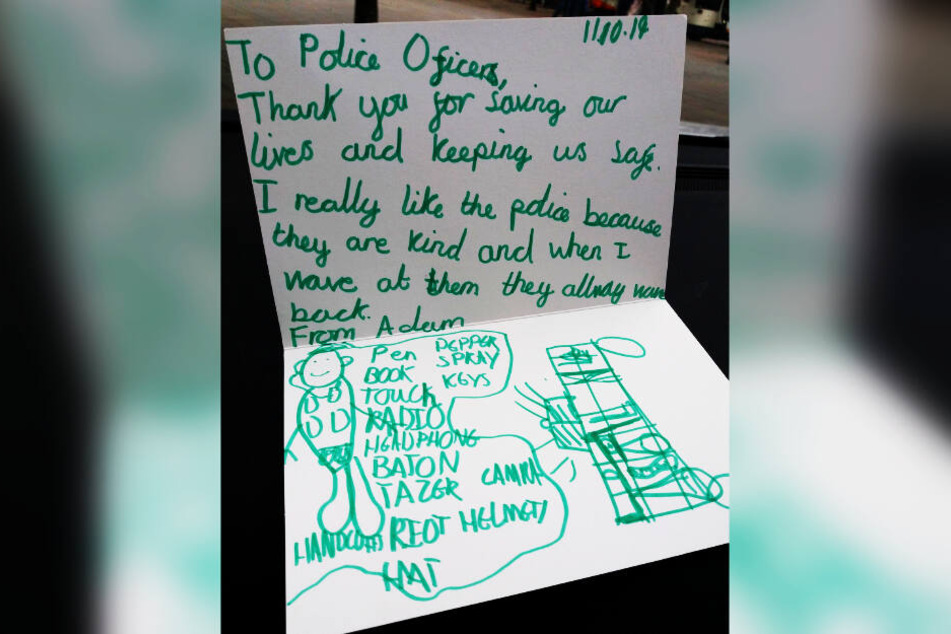 11/10.19
To Police Oficers,
Thank you for saving our
lives and keeping us safe.
I really like the police because
they are kind and when I
wave at them they allway wave
back.
From Adam
Pen PEPPER
BOOK SPRAY
TOUCH KEYS
RADIO
HEADPHONE
BATON
TAZER CAMRA
RIOT HELMET
HANDCUFFS
HAT